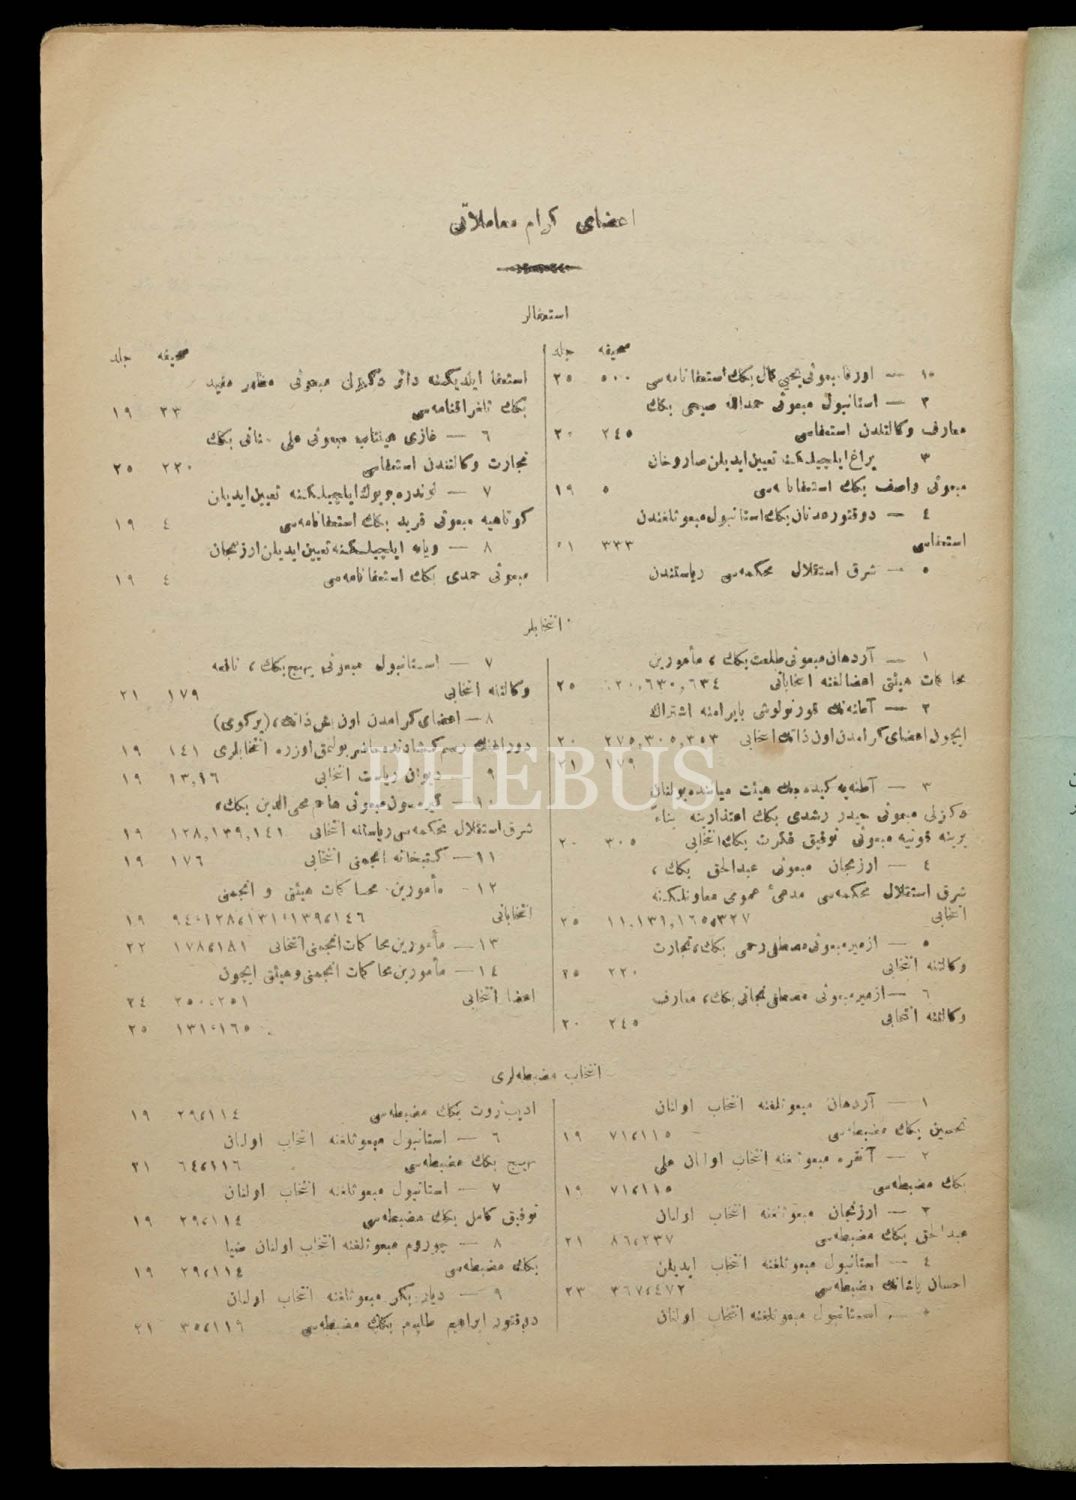 اعضای کرام معاملاتی
استعفالر
صحیفه جلد
١٥ — اورفا مبعوثی یحیی کمال بكك استعفانامه‌سی ٥٠٠ ٢٥
٢ — استانبول مبعوثی حمدالله صبحی بكك
معارف وکالتلدن استعفاسی ٢٤٥ ٢٠
٣ پراغ ایلچیلکنه تعیین ایدیلن صاروخان
مبعوثی واصف بكك استعفانامه‌سی ٥ ١٩
٤ — دوقتور عدنان بكك استانبول مبعوثلغندن
استعفاسی ٣٣٣ ٥١
٥ — شرق استقلال محکمه‌سی ریاستندن
صحیفه جلد
استعفا ایلدیکنه دائر دکیزلی مبعوثی مظهر مفید
بكك تلغرافنامه‌سی ٢٣ ١٩
٦ — غازی عینتاب مبعوثی علی جنانی بكك
تجارت وکالتندن استعفاسی ٢٢٠ ٢٥
٧ — لوندره بویوك ایلچیلکنه تعیین ایدیلن
کوتاهیه مبعوثی فرید بكك استعفانامه‌سی ٤ ١٩
٨ — ویانه ایلچیلکنه تعیین ایدیلن ارزنجان
مبعوثی حمدی بكك استعفانامه‌سی ٤ ١٩
انتخابلر
١ — آردهان مبعوثی طلعت بكك، مأمورین
محاکمات هیئتی اعضالغنه انتخاباتی ٦٢٠,٦٣٠,٦٣٤ ٢٥
٢ — آطنه‌نك قورتولوشی بایرامنه اشتراك
ایچون اعضای کرامدن اون ذاتك انتخابی ٢٧٥,٣٠٥,٣٥٣ ٢٠
١٧٩ ٢١
٣ — آطنه‌یه کیده‌جك هیئت میاننده بولنان
دکزلی مبعوثی حیدر رشدی بكك اعتذارینه بناءً
یرینه قونیه مبعوثی توفیق فکرت بكك انتخابی ٣٠٥ ٢٠
٤ — ارزنجان مبعوثی عبدالحق بكك،
شرق استقلال محکمه‌سی مدعئ عمومی معاونلکنه
انتخابی ١١,١٣١,١٦٥,٣٢٧ ٢٥
٥ — ازمیر مبعوثی مصطفی رحمی بكك، تجارت
وکالتنه انتخابی ٢٢٠ ٢٥
٦ — ازمیر مبعوثی مصطفی نجاتی بكك، معارف
وکالتنه انتخابی ٢٤٥ ٢٠
٧ — استانبول مبعوثی بهیج بكك، نافعه
وکالتنه انتخابی ١٧٩ ٢١
٨ — اعضای کرامدن اون بش ذاتك، (یرکوی)
رسم کشادنده حاضر بولنمق اوزره انتخابلری ١٤١ ١٩
٩ — دیوان ریاست انتخابی ١٣,١٦ ١٩
١٠ — کیره‌سون مبعوثی حاجم محی الدین بكك،
شرق استقلال محکمه‌سی ریاستنه انتخابی ١٢٨,١٣٩,١٤١ ١٩
١١ — کتبخانه انجمنی انتخابی ١٧٦ ١٩
١٢ — مأمورین محاکمات هیئتی و انجمنی
انتخاباتی ٩٤،١٢٨،١٣١،١٣٩،١٤٦ ١٩
١٣ — مأمورین محاکمات انجمنی انتخابی ١٧٨،١٨١ ٢٢
١٤ — مأمورین محاکمات انجمنی و هیئتی ایچون
اعضا انتخابی ٢٥٠،٢٥١ ٢٤
١٣١،١٦٥ ٢٥
انتخاب مضبطه‌لری
١ — آردهان مبعوثلغنه انتخاب اولنان
تحسین بكك مضبطه‌سی ٧١،١١٥ ١٩
٢ — آنقره مبعوثلغنه انتخاب اولنان علی
بكك مضبطه‌سی ٧١،١١٥ ١٩
٣ — ارزنجان مبعوثلغنه انتخاب اولنان
عبدالحق بكك مضبطه‌سی ٨٦،٢٣٧ ٢١
٤ — استانبول مبعوثلغنه انتخاب ایدیلن
احسان پاشانك مضبطه‌سی ٣٦٧،٤٧٢ ٢٣
٥ — استانبول مبعوثلغنه انتخاب اولنان
ادیب ثروت بكك مضبطه‌سی ٢٩،١١٤ ١٩
٦ — استانبول مبعوثلغنه انتخاب اولنان
بهیج بكك مضبطه‌سی ٦٤،١١٦ ٢١
٧ — استانبول مبعوثلغنه انتخاب اولنان
توفیق کامل بكك مضبطه‌سی ٢٩،١١٤ ١٩
٨ — چوروم مبعوثلغنه انتخاب اولنان ضیا
بكك مضبطه‌سی ٢٩،١١٤ ١٩
٩ — دیاربکر مبعوثلغنه انتخاب اولنان
دوقتور ابراهیم طالیم بكك مضبطه‌سی ٣٥،١١٦ ٢١
PHEBUS